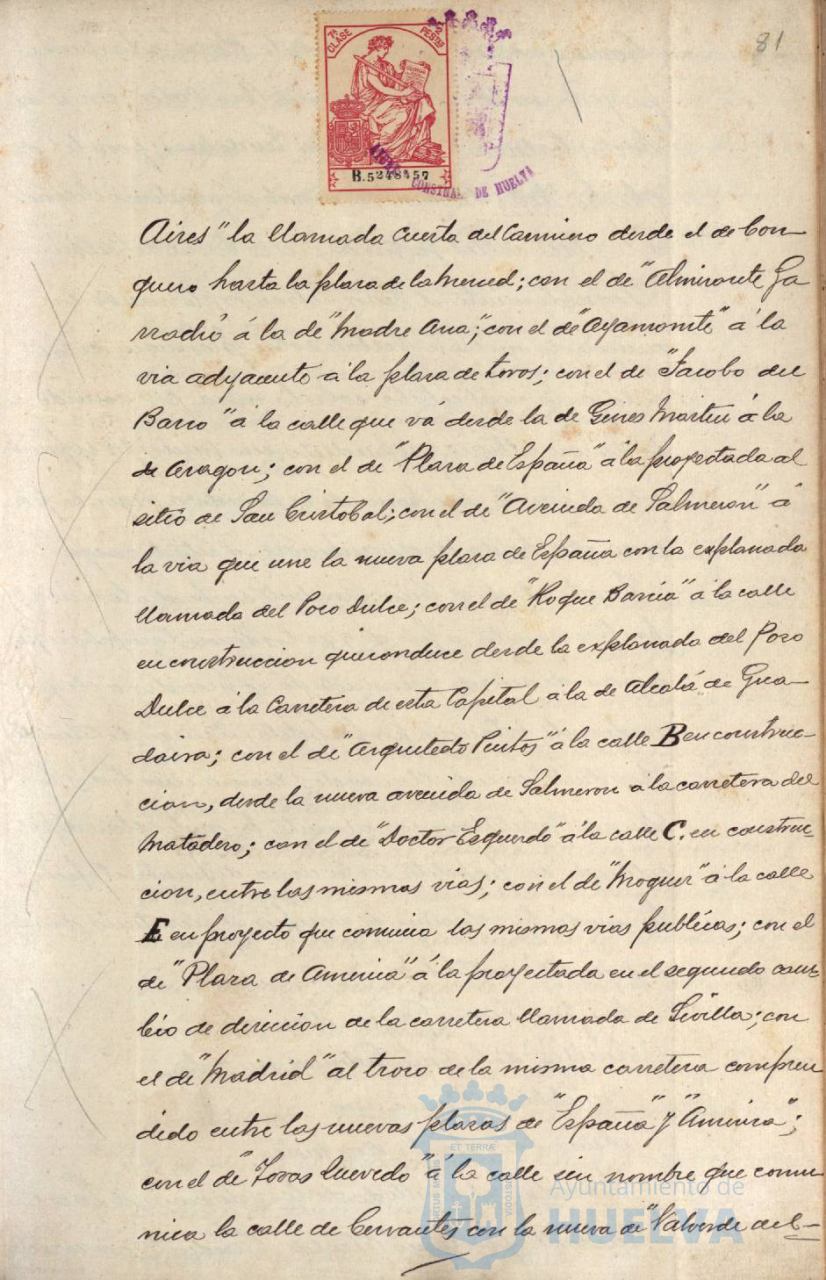 81
7ª CLASE
2 PESTAS
B.5248157
CONSTNAL DE HUELVA
Aires" la llamada cuesta del Carnicero desde el de Con-
quero hasta la plaza de la Merced; con el de "Almirante Ga
rrocho" á la de "Madre Ana"; con el de "Ayamonte" á la
via adyacente á la plaza de toros; con el de "Jacobo del
Barco" á la calle que vá desde la de Gines Martin á la
de Aragon; con el de "Plaza de España" á la proyectada al
sitio de San Cristobal; con el de "Avenida de Salmeron" á
la via que une la nueva plaza de España con la explanada
llamada del Pozo Dulce; con el de "Roque Barcia" á la calle
en construccion que conduce desde la explanada del Pozo
Dulce á la Carretera de esta Capital á la de Alcalá de Gua-
daira; con el de "Arquitecto Pintos" á la calle B en construc-
cion, desde la nueva avenida de Salmeron á la carretera del
Matadero; con el de "Doctor Esquerdo" á la calle C. en construc-
cion, entre las mismas vias; con el de "Moguer" á la calle
E en proyecto que comunica las mismas vias publicas; con el
de "Plaza de America" á la proyectada en el segundo cam-
bio de direccion de la carretera llamada de Sevilla; con
el de "Madrid" al trozo de la misma carretera compren
dido entre las nuevas plazas de "España" y "America";
con el de "Tovas Quevedo" á la calle sin nombre que comu-
nica la calle de Cervantes con la nueva de "Valverde del-
ET TERRÆ
Ayuntamiento de
HUELVA